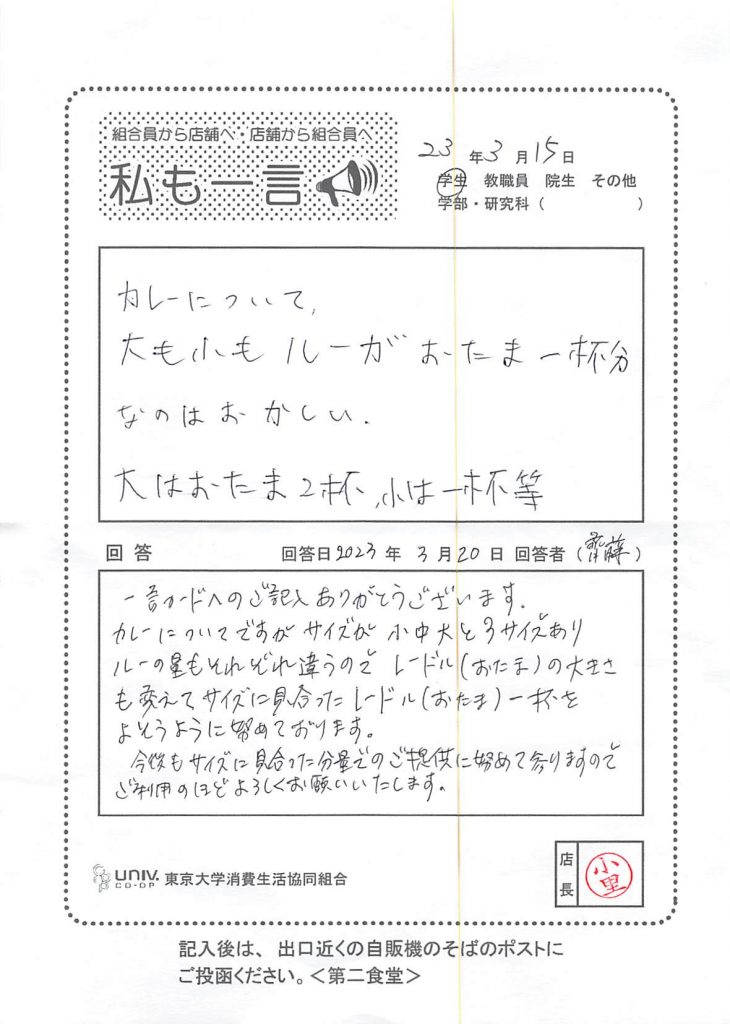 組合員から店舗へ・店舗から組合員へ
私も一言
23年3月15日
学生 教職員 院生 その他
学部・研究科( )
カレーについて、
大も小もルーがおたま一杯分
なのはおかしい.
大はおたま2杯、小は一杯等
回答 回答日2023年3月20日 回答者(齋藤)
一言カードへのご記入ありがとうございます.
カレーについてですがサイズが小中大と3サイズあり
ルーの量もそれぞれ違うので レードル(おたま)の大きさ
も変えてサイズに見合ったレードル(おたま)一杯を
よそうように努めております。
今後もサイズに見合った分量でのご提供に努めて参りますので
ご利用のほどよろしくお願いいたします。
UNIV. CO-OP 東京大学消費生活協同組合
店長 小里
記入後は、出口近くの自販機のそばのポストに
ご投函ください。<第二食堂>